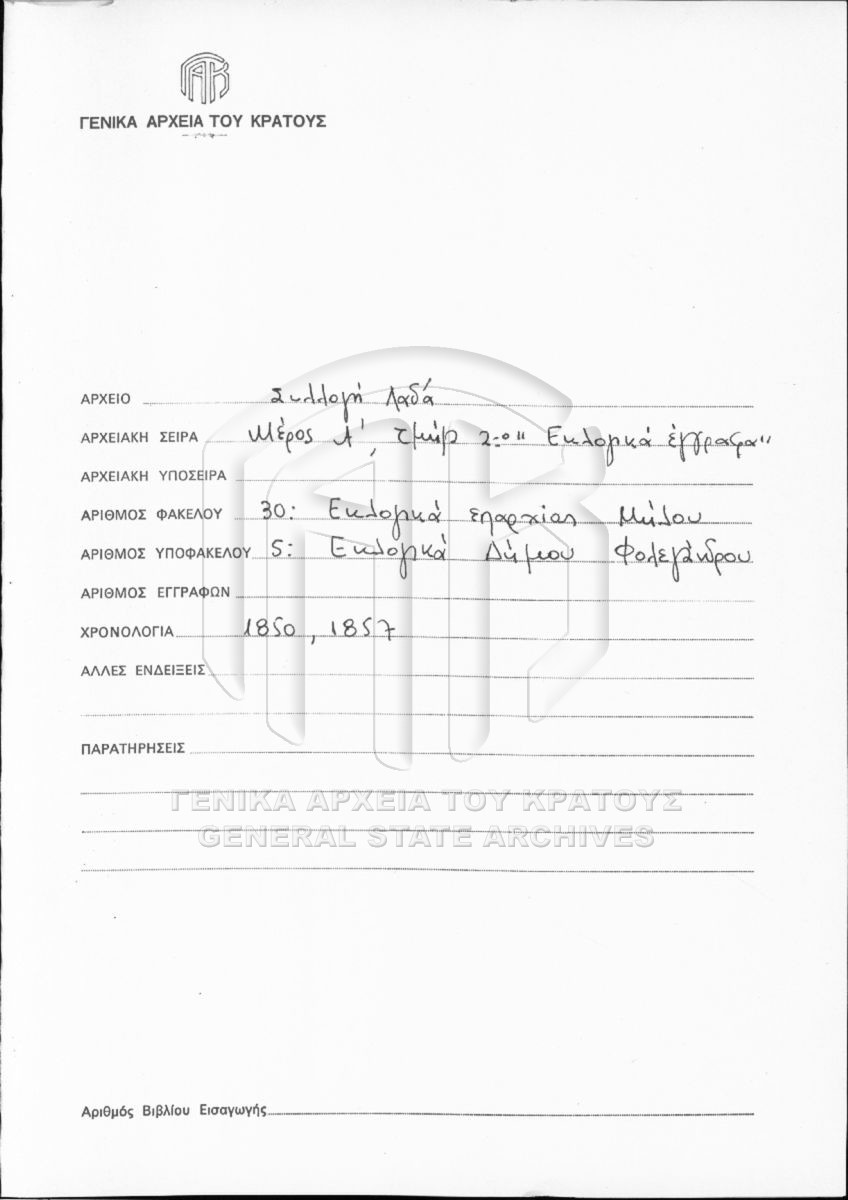 ΓΑΚ
ΓΕΝΙΚΑ ΑΡΧΕΙΑ ΤΟΥ ΚΡΑΤΟΥΣ
ΑΡΧΕΙΟ Συλλογή Λαδά
ΑΡΧΕΙΑΚΗ ΣΕΙΡΑ Μέρος Α', τμήμ 2ο "Εκλογικά έγγραφα"
ΑΡΧΕΙΑΚΗ ΥΠΟΣΕΙΡΑ
ΑΡΙΘΜΟΣ ΦΑΚΕΛΟΥ 30: Εκλογικά επαρχίας Μήλου
ΑΡΙΘΜΟΣ ΥΠΟΦΑΚΕΛΟΥ 5: Εκλογικά Δήμου Φολεγάνδρου
ΑΡΙΘΜΟΣ ΕΓΓΡΑΦΩΝ
ΧΡΟΝΟΛΟΓΙΑ 1850, 1857
ΑΛΛΕΣ ΕΝΔΕΙΞΕΙΣ
ΠΑΡΑΤΗΡΗΣΕΙΣ
ΓΕΝΙΚΑ ΑΡΧΕΙΑ ΤΟΥ ΚΡΑΤΟΥΣ
GENERAL STATE ARCHIVES
Αριθμός Βιβλίου Εισαγωγής